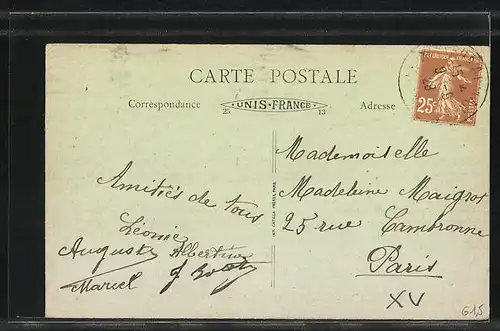 CARTE POSTALE
Correspondance
UNIS-FRANCE
25 13
Adresse
25c
Amitiés de tous
Léonie
Auguste Albertine
Marcel
Mademoiselle
Madeleine Maigrot
25 rue Cambronne
Paris
XV
G15